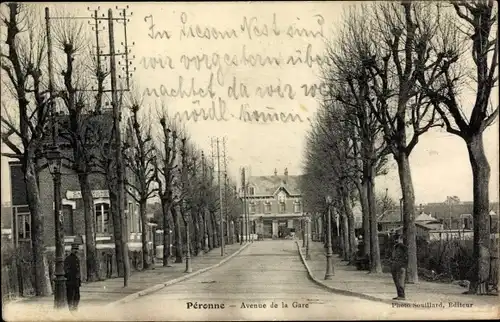 In diesem Nest sind
wir vorgestern über
nachtet da wir weg
nördl. kommen.
Péronne — Avenue de la Gare
Photo Souillard, Editeur